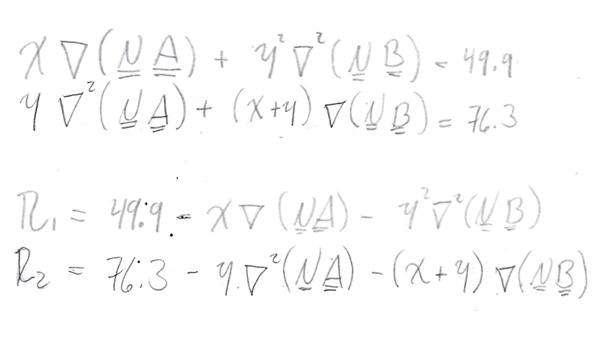 x ∇(N A) + y² ∇²(N B) = 49.9
y ∇²(N A) + (x+y) ∇(N B) = 76.3
R₁ = 49.9 - x ∇ (N A) - y² ∇²(N B)
R₂ = 76.3 - y ∇²(N A) - (x+y) ∇(N B)